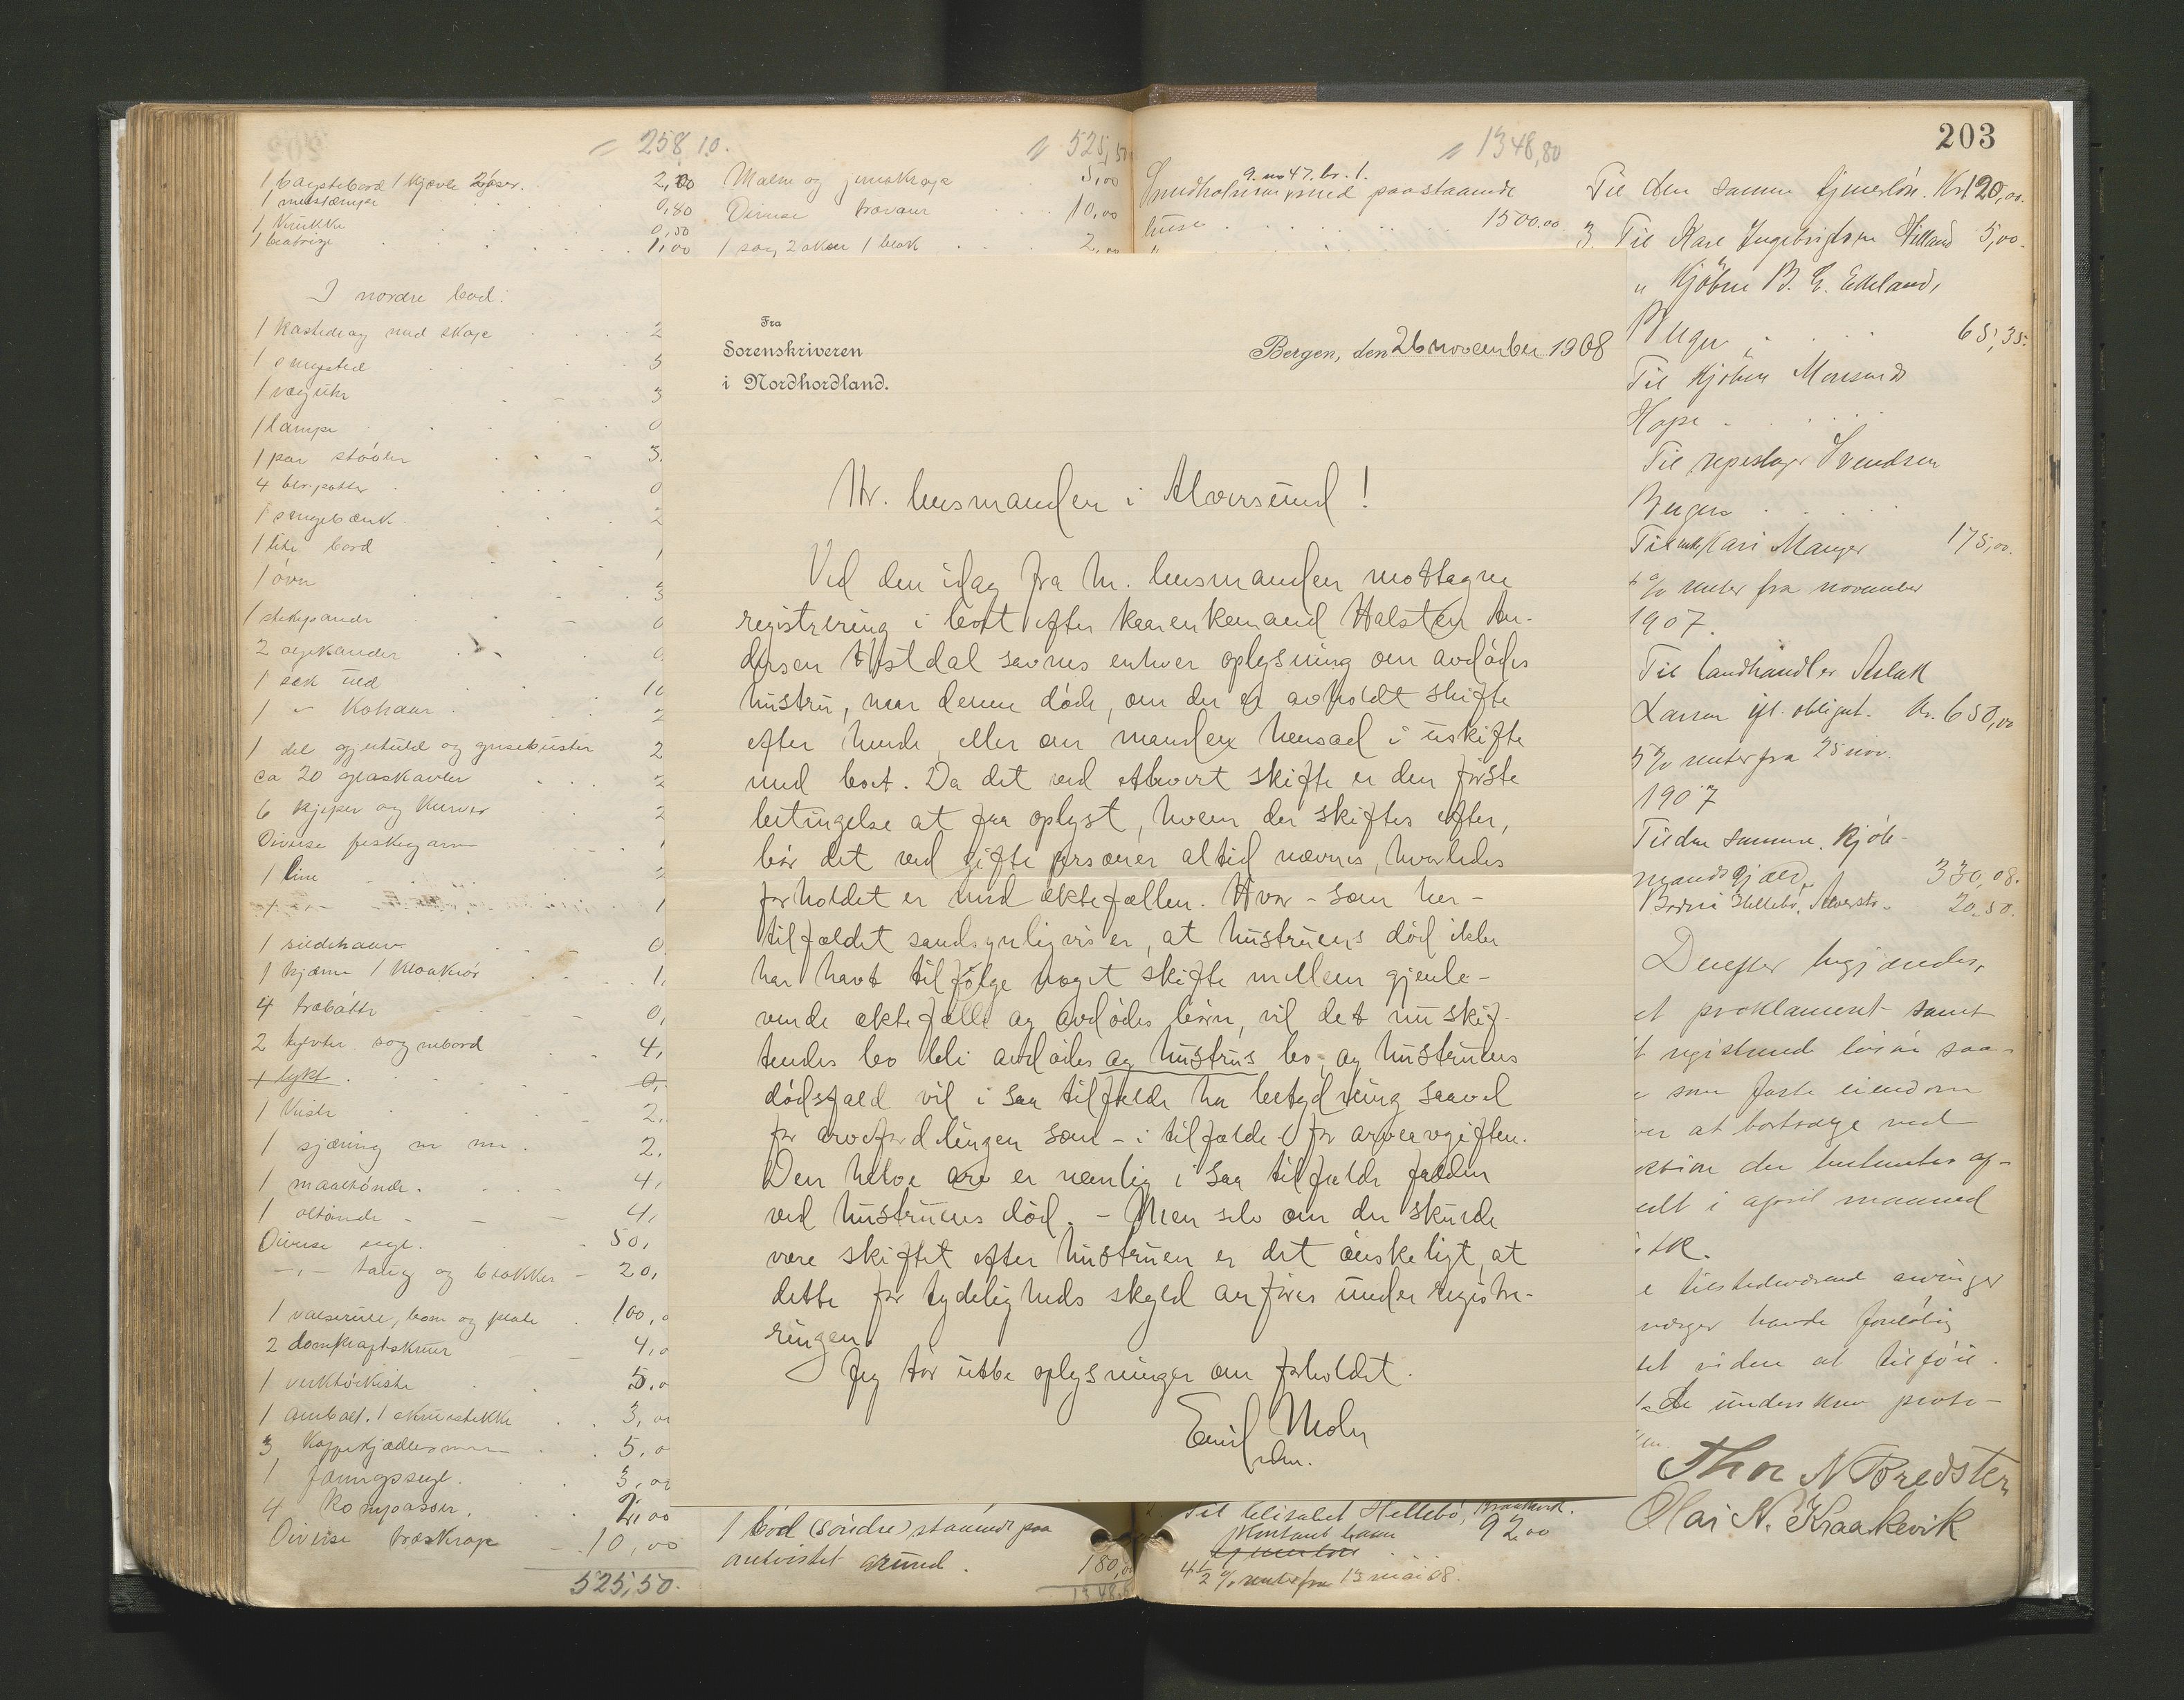 258,10.
1 bagstebord 1 kjevle 2 öser. 2,20
0,80
1 krukke 0,50
1,00
I nordre bod:
1 kastedrag med skage 2
1 sengested 3
1 væguhr 3
1 lampe 0
1 par stövler 3.
4 0
1 sengebænk 2
1 lite bord 1
1 ovn 3
1 stekepande 0
2 oljekander 0
1 sæk uld 10
1 " Kohaar 2
1 del gjeituld og grisebuster 2
ca 20 glaskavler 2
6 kjiper og kurver 2
Diverse fiskegarn 1
1 line 2
1 -"- 1
1 sildehaav 0
1 kjærne 1 1,
4 træbötte 0,
2 tylvter sognebord 4,
1 lykt 0,
1 kiste 2.
1 sjæring 2.
1 maaltönde. 4,
1 öltönde 4,
Diverse segl. 50,
-"- taug og blokker 20,
1 valserulle, bom og 100,0
2 domkraftskruer 4,0
1 verktöikiste 5,0
1 ambolt. 1 skruestikke 3,00
3 5,0
1 3,00
4 kompasser. 2,00
Diverse træskrap 10,00
525,50.
" 525,50
Malm og jernskrap 5,00
Diverse trævarer 10,00
1 sag 2 økser 1 2,00
1 bod (söndre) staaende paa
utvistet grund. 180,00
1348,80
" 1348,80
g. no 47. br. 1.
med paastaaende
huse 1500.00
Til Elisabet Hellebö, Kraakevik.
Kontant laan 92,00
4 1/2 % renter fra 13 mai 08.
203
Til den samme tjenerlön. Kr 120,00.
3 Til Kari Ingebrigtsen 5,00.
" Kjöbm B. E. Ekeland,
Bergen 65,35.
Til Kjöbm Monsen
Hope
Til repslager Svendsen
Bergen
Til enke Kari Manger 175,00.
% renter fra november
1907.
Til landhandler Aslak
Larsen ifl. obligat. kr. 650,00
5 % renter fra 25 nov.
1907
Til den samme. Kjöb-
mandsgjæld 330,08.
Hellebö, Alverstr. 20,50.
Derefter begjærdes,
et proklament samt
t registrered lösöre saa-
som faste eiendom
ver at bortsælge ved
auktion der berammes af-
holdt i april maaned
tilstedeværende arvinger
verger havde foreløbig
tet videre at tilföie.
de underskrev proto-
Thor N Bredsten
Olai N. Kraakevik
Fra
Sorenskriveren
i Nordhordland.
Bergen, den 26 november 1908
Hr. lensmanden i Alversund!
Ved den idag fra hr. lensmanden mottagne
registrering i boet efter kaarenkemand Halsten An-
dersen Ystdal savnes enhver oplysning om avdödes
hustru, naar denne döde, om der er avholdt skifte
efter hende, eller om manden hensad i uskifte
med boet. Da det ved ethvert skifte er den förste
betingelse at faa oplyst, hvem der skiftes efter,
bör det ved gifte personer altid nævnes, hvorledes
forholdet er med ektefællen. Hvor - som her -
tilfældet sandsynligvis er, at hustruens död ikke
har havt tilfölge noget skifte mellem gjenle-
vende ektefælle og avdödes börn, vil det nu skif-
tendes bo bli avdödes og hustrus bo, og hustruens
dödsfald vil i saa tilfælde ha betydning saavel
for arvefordelingen som - i tilfælde - for arveavgiften.
Den halve arv er nemlig i saa tilfælde falden
ved hustruens död. - Men selv om der skulde
være skiftet efter hustruen er det önskeligt, at
dette for tydeligheds skyld anföres under registre-
ringen.
Jeg tör utbe oplysninger om forholdet.
Emil Mohn